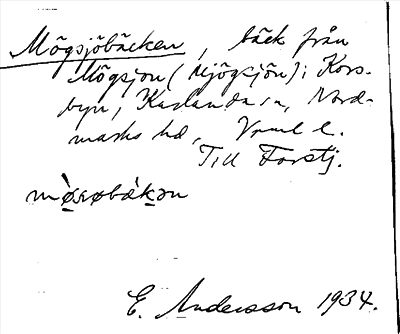 Mögsjöbäcken, bäck från
Mögsjön (Mjögsjön) i Kors-
byn, Karlanda sn, Nord-
marks hd, Vrml l.
Till Forstj.
E. Andersson 1934.